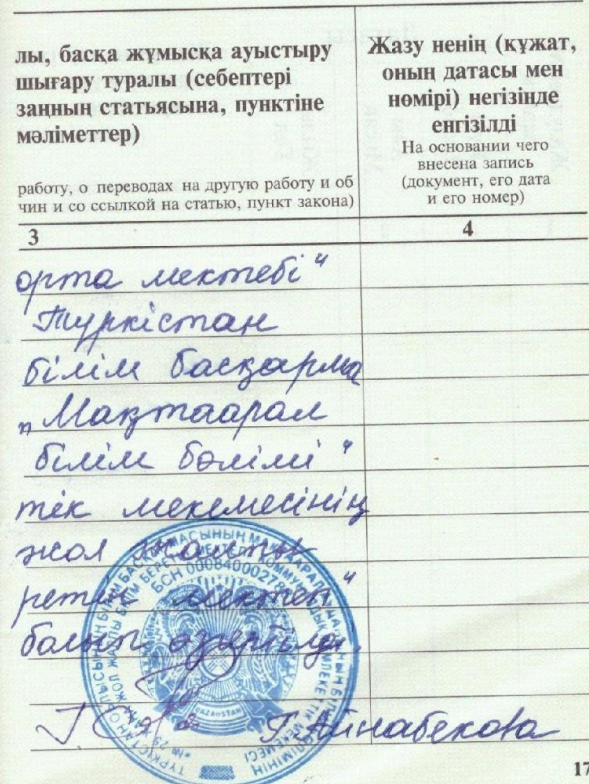 лы, басқа жұмысқа ауыстыру
шығару туралы (себептері
заңның статьясына, пунктіне
мәліметтер)
работу, о переводах на другую работу и об
чин и со ссылкой на статью, пункт закона)
Жазу ненің (құжат,
оның датасы мен
нөмірі) негізінде
енгізілді
На основании чего
внесена запись
(документ, его дата
и его номер)
3
4
орта мектебі"
Түркістан
білім басқарма
„Мақтаарал
білім бөлімі"
тік мекемесінің
жол
ретін мектеп"
болып өзгертілді.
БСН 00084000278
KAZAKHSTAN
Г. Айнабекова
17